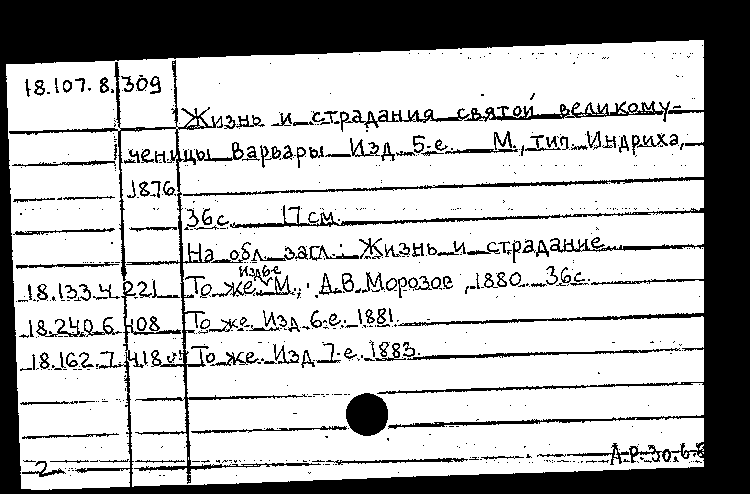 18.107.8.309
Жизнь и страдания святой великому-
ченицы Варвары Изд. 5-е. М., тип. Индриха,
1876
36 с. 17 см.
На обл. загл.: Жизнь и страдание
18.133.4.221 То же. М., А.В. Морозов, 1880. 36 с.
18.240.6.408 То же. Изд. 6-е. 1881.
18.162.7.418 То же. Изд. 7-е. 1883.
2 А-Р-30.6.